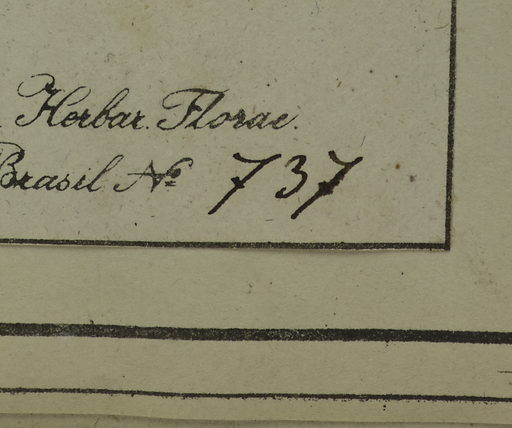 Herbar. Florae.
Brasil No 737